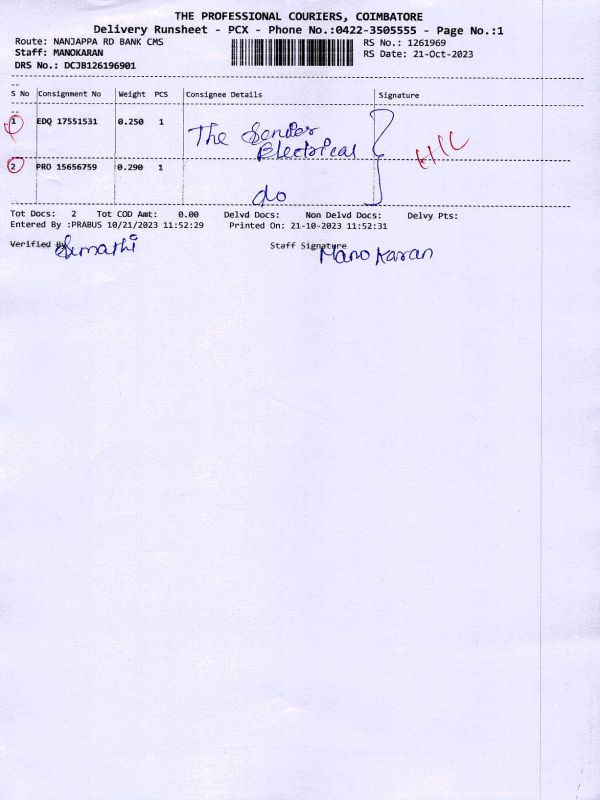 THE PROFESSIONAL COURIERS, COIMBATORE
Delivery Runsheet - PCX - Phone No.:0422-3505555 - Page No.:1
Route: NANJAPPA RD BANK CMS RS No.: 1261969
Staff: MANOKARAN RS Date: 21-Oct-2023
DRS No.: DCJB126196901
S No Consignment No Weight PCS Consignee Details Signature
1 EDQ 17551531 0.250 1 The Sender
Electrical
2 PRO 15656759 0.290 1
do
Tot Docs: 2 Tot COD Amt: 0.00 Delvd Docs: Non Delvd Docs: Delvy Pts:
Entered By :PRABUS 10/21/2023 11:52:29 Printed On: 21-10-2023 11:52:31
Verified By Sumathi Staff Signature Mano Karan